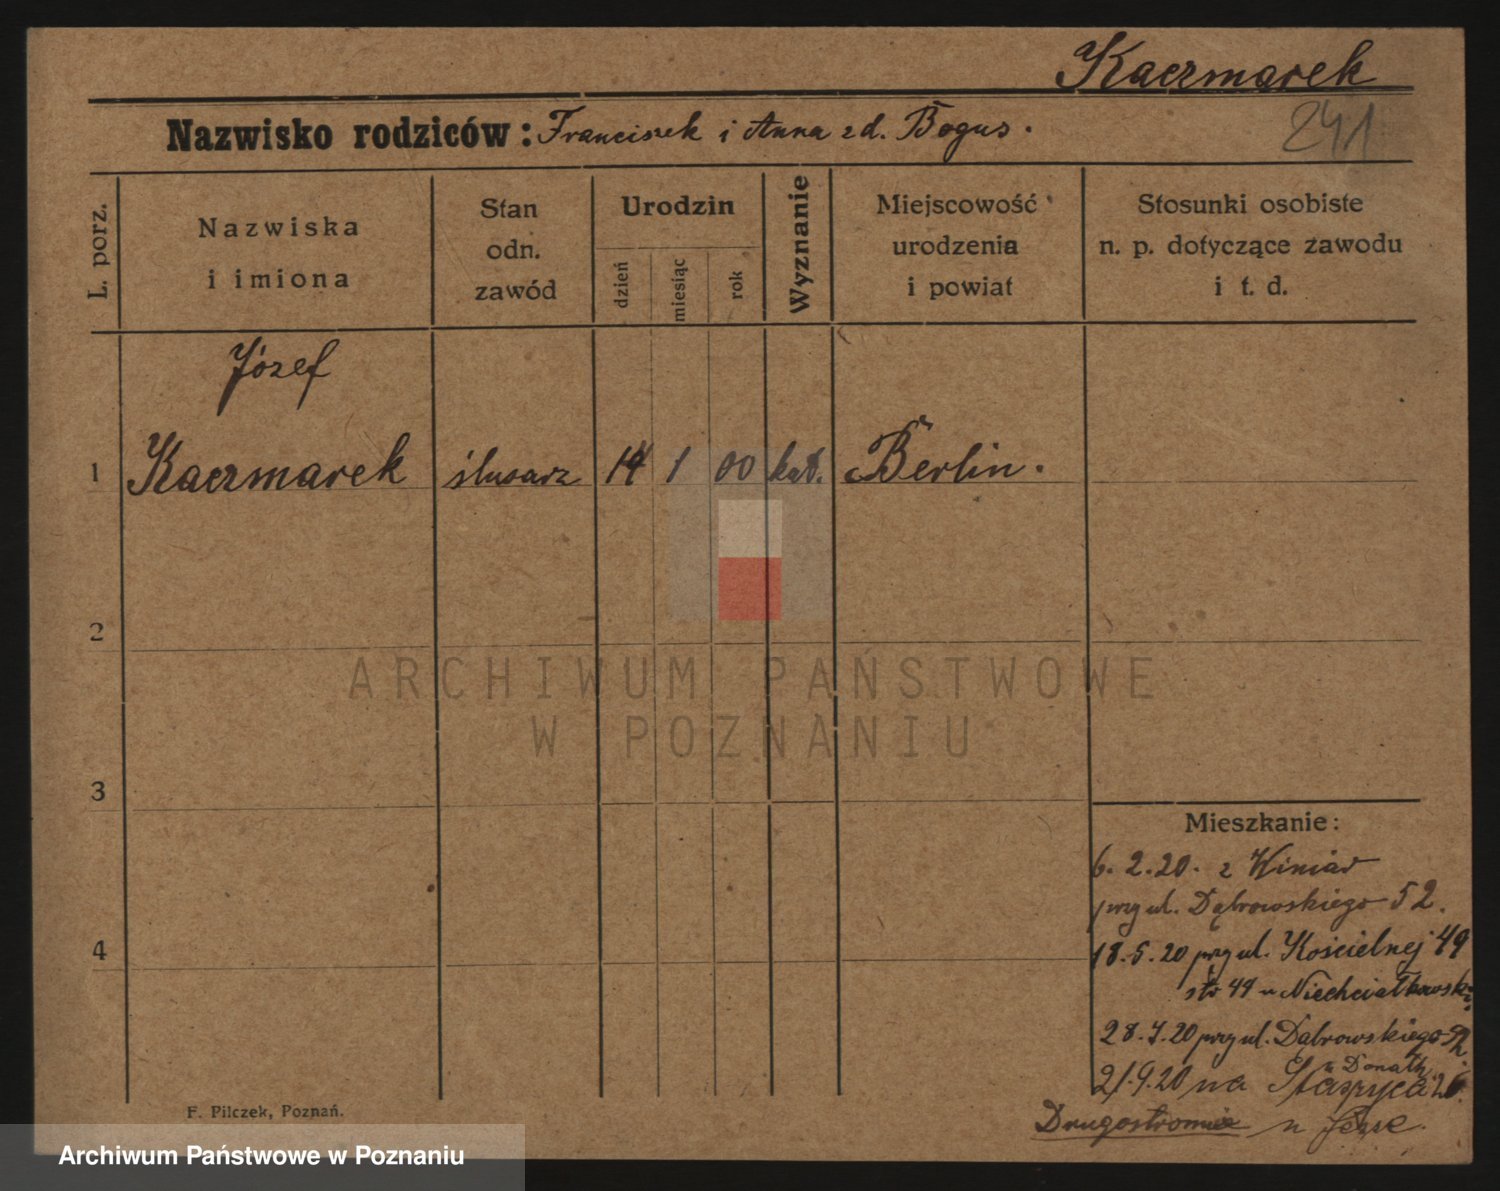 Kaczmarek
241
Nazwisko rodziców: Franciszek i Anna zd. Bogus.
L. porz.
Nazwiska
i imiona
Stan
odn.
zawód
Urodzin
dzień
miesiąc
rok
Wyznanie
Miejscowość
urodzenia
i powiat
Stosunki osobiste
n. p. dotyczące zawodu
i t. d.
Józef
1 Kaczmarek ślusarz 14 1 00 kat. Berlin.
2
3
4
Mieszkanie:
6. 2. 20. z Winiar
przy ul. Dąbrowskiego 52.
18. 5. 20 przy ul. Kościelnej 49
u
28. 7. 20 przy ul. Dąbrowskiego
u Donath
21. 9. 20 na Staszyca 26.
Drugostronnie u
F. Pilczek, Poznań.
ARCHIWUM PAŃSTWOWE
W POZNANIU
Archiwum Państwowe w Poznaniu